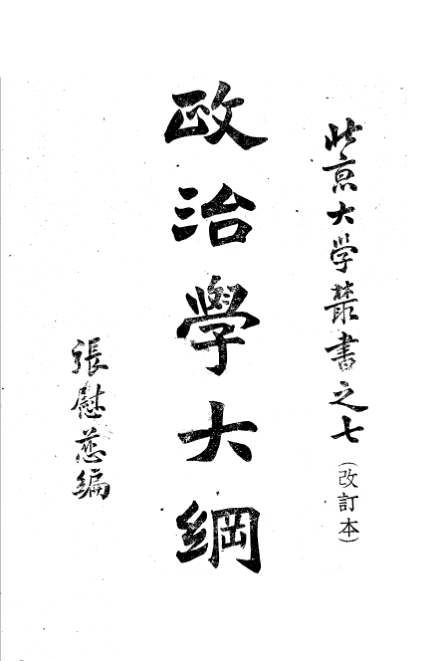 北京大学叢書之七(改訂本)
政治學大綱
張慰慈編